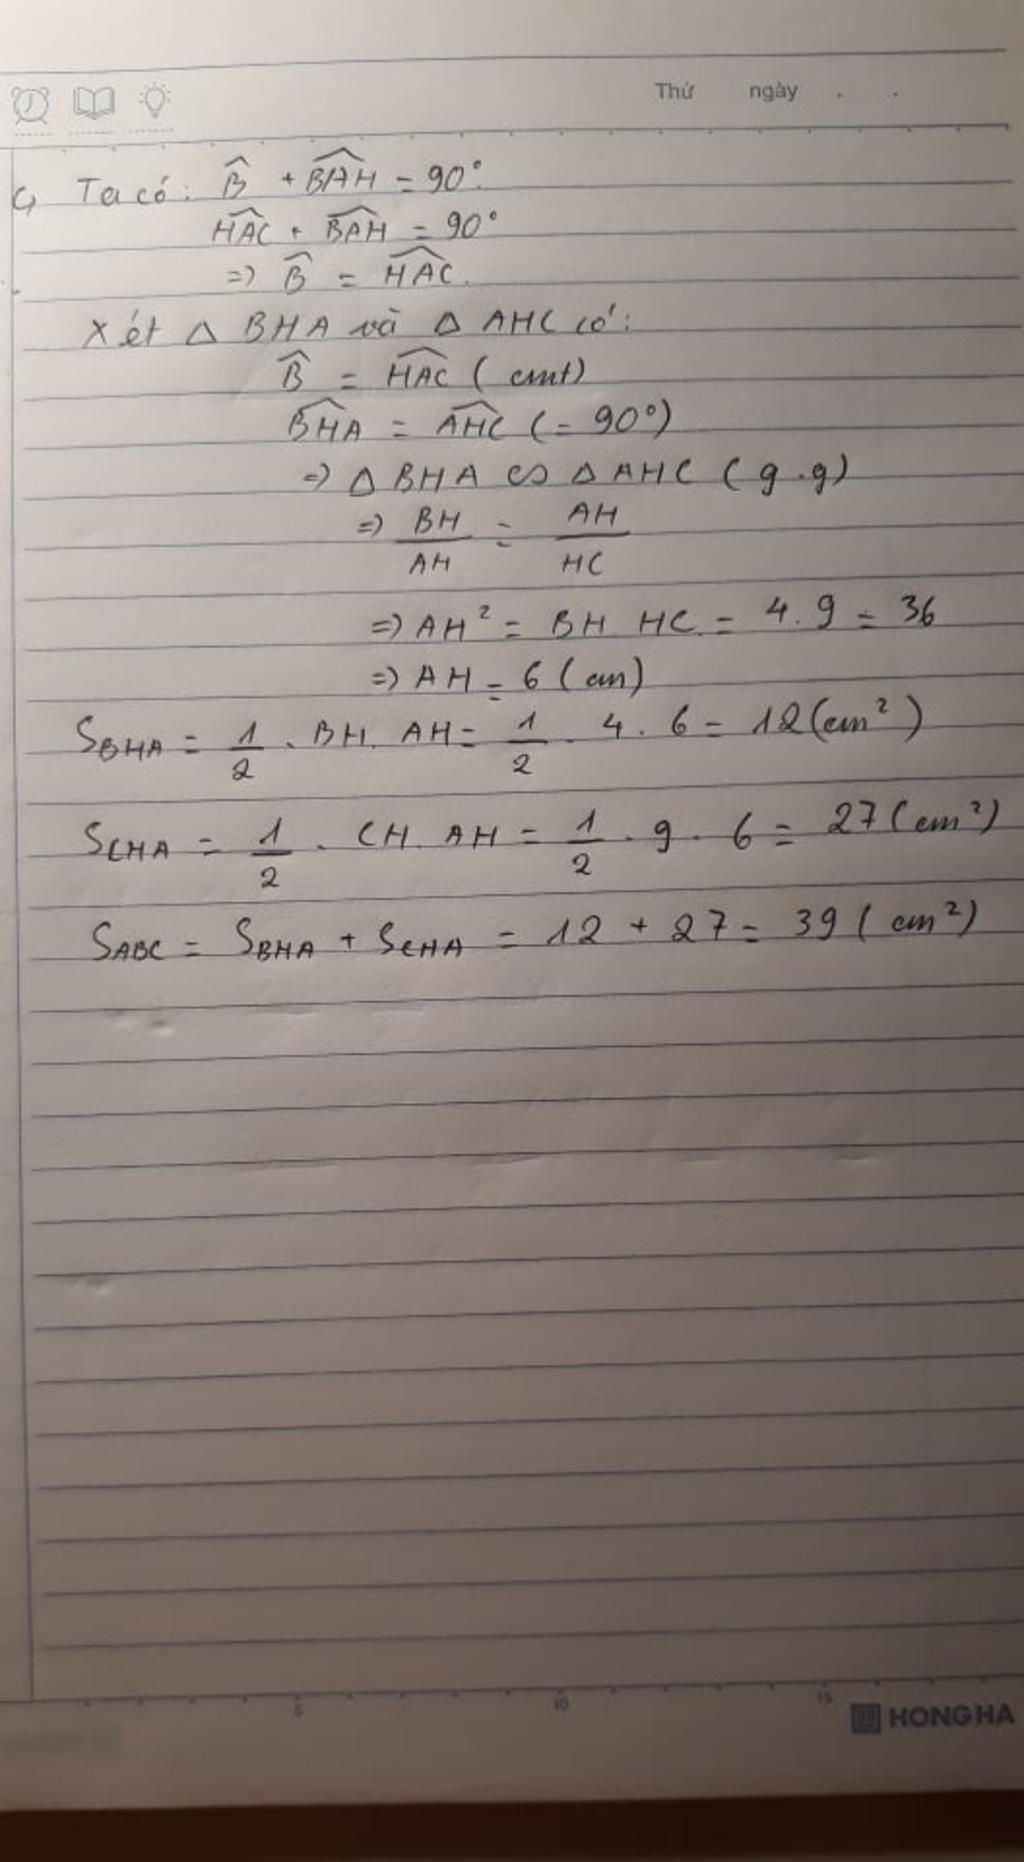 Thứ ngày . .
c, Ta có: B̂ + B͡AH = 90°.
H͡AC + B͡AH = 90°
=> B̂ = H͡AC.
Xét △ BHA và △ AHC có:
B̂ = H͡AC ( cmt)
B͡HA = A͡HC (= 90°)
=> △ BHA ∽ △ AHC ( g.g)
=> BH/AH = AH/HC
=> AH² = BH. HC = 4. 9 = 36
=> AH = 6 ( cm)
S_BHA = 1/2 . BH. AH = 1/2 . 4 . 6 = 12 (cm²)
S_CHA = 1/2 . CH. AH = 1/2 . 9 . 6 = 27 ( cm²)
S_ABC = S_BHA + S_CHA = 12 + 27 = 39 ( cm²)
5 10 15
HONG HA